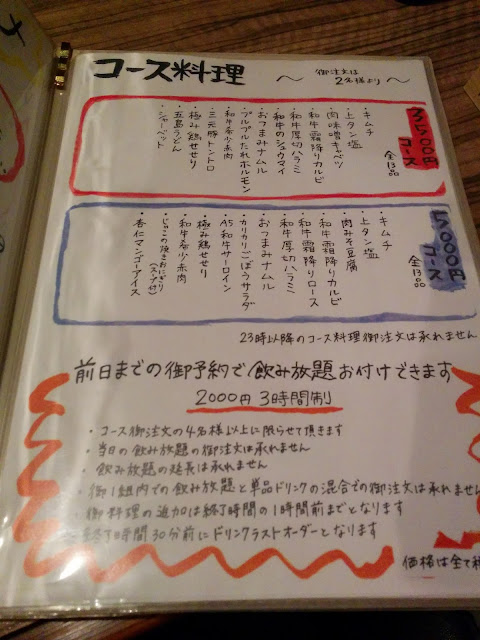 コース料理
～ 御注文は
2名様より ～
3500円
コース
全13品
・キムチ
・上タン塩
・肉味噌キャベツ
・和牛霜降りカルビ
・和牛厚切ハラミ
・和牛のシュウマイ
・おつまみナムル
・プルプルたれホルモン
・和牛希少赤肉
・三元豚トントロ
・極み鶏せせり
・五島うどん
・シャーベット
5000円
コース
全13品
・キムチ
・上タン塩
・肉みそ豆腐
・和牛霜降りカルビ
・和牛霜降りロース
・和牛厚切ハラミ
・おつまみナムル
・カリカリごぼうサラダ
・A5和牛サーロイン
・極み鶏せせり
・和牛希少赤肉
・じゃこの焼きおにぎり
(スープ付)
・杏仁マンゴーアイス
23時以降のコース料理御注文は承れません
前日までの御予約で飲み放題お付けできます
2000円 3時間制
・コース御注文の4名様以上に限らせて頂きます
・当日の飲み放題の御注文は承れません
・飲み放題の延長は承れません
・御1組内での飲み放題と単品ドリンクの混合での御注文は承れません
・御料理の追加は終了時間の1時間前までとなります
・終了時間30分前にドリンクラストオーダーとなります
価格は全て